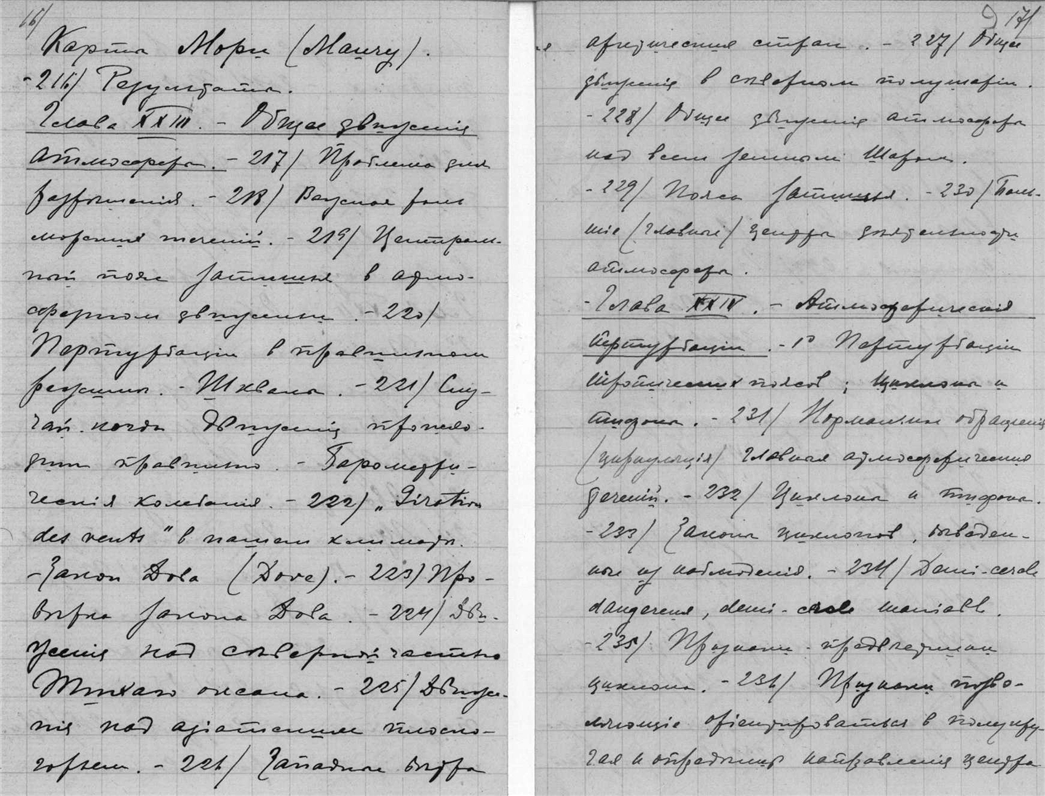 16/
Карта Мори (Маury).
- 216/ Результаты.
Глава XXIII. - Общее движенія
атмосферы. - 217/ Проблема для
разрѣшенія. - 218/ Важная роль
морскихъ теченій. - 219/ Централь-
ный пояс затишья в атмо-
сферном движеніи. - 220/
Пертурбаціи в правильном
режимѣ. - Шквалы. - 221/ Слу-
чай когда движенія происхо-
дят правильно. - Барометри-
ческія колебанія. - 222/ „Giration
des vents" в нашем климатѣ.
- Закон Дова (Dove). - 223/ Про-
вѣрка закона Дова. - 224/ Дви-
женія над сѣверной частью
Тихаго океана. - 225/ Движе-
нія над азіатским плоско-
горьем. - 226/ Западные вѣтра
17/
арктических стран. - 227/ Общее
движенія в сѣверном полушаріи.
- 228/ Общее движенія атмосферы
над всем земным Шаром.
- 229/ Пояса затишья. - 230/ Боль-
шіе (главные) центры дѣятельности
атмосферы.
- Глава XXIV. - Атмосферическія
пертурбаціи. - 1º Пертурбаціи
тропических поясов; циклоны и
тифоны. - 231/ Нормальныя обращенія
(циркуляція) главныя атмосферическія
теченій. - 232/ Циклоны и тифоны.
- 233/ Законы циклонов, выведен-
ные из наблюденія. - 234/ Demi-cercle
dangereux, demi-cercle maniable.
- 235/ Признаки - предвестники
циклона. - 236/ Признаки позво-
ляющіе оріентироваться в
и направленія центра